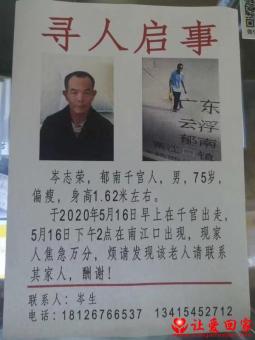 寻人启事
广东
云浮
郁南
南江口镇
岑志荣，郁南千官人，男，75岁，
偏瘦，身高1.62米左右。
于2020年5月16日早上在千官出走，
5月16日下午2点在南江口出现，现家
人焦急万分，烦请发现该老人请联系
其家人，酬谢！
联系人：岑生
电话：18126766537 13415452712
让爱回家